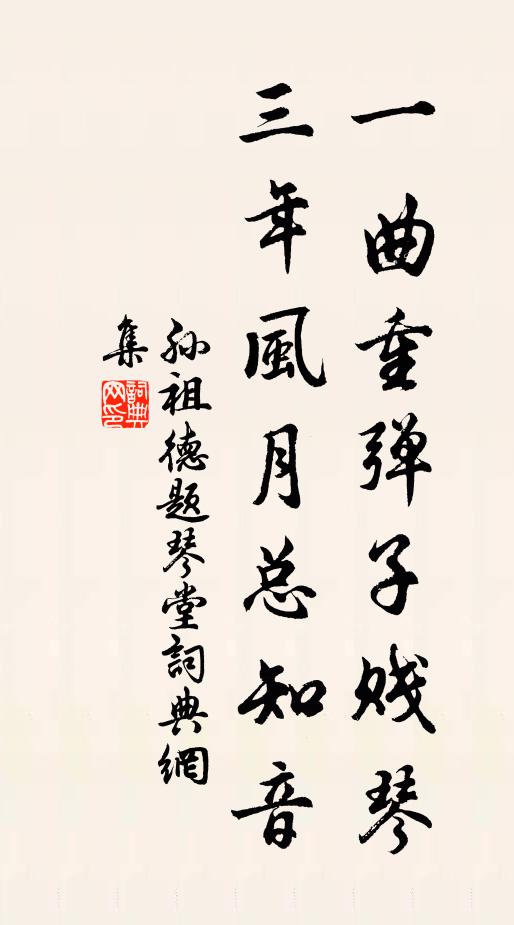 一曲重弹子贱琴
三年風月总知音
孙祖德题琴堂詞典網
集
詞典
网印